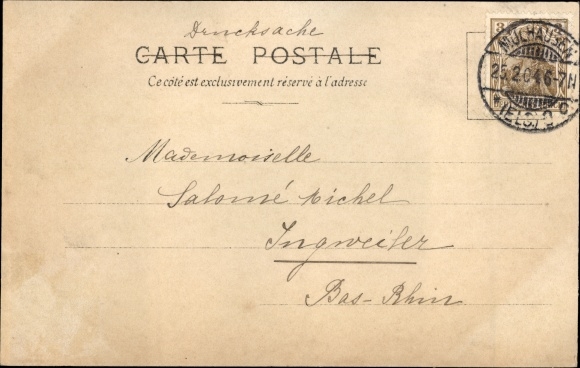 Drucksache
CARTE POSTALE
Ce côté est exclusivement réservé à l'adresse
3
MÜLHAUSEN
25.2.04.6-7N
*(ELS.)2 c
Mademoiselle
Salomé Michel
Ingweiler
Bas-Rhin